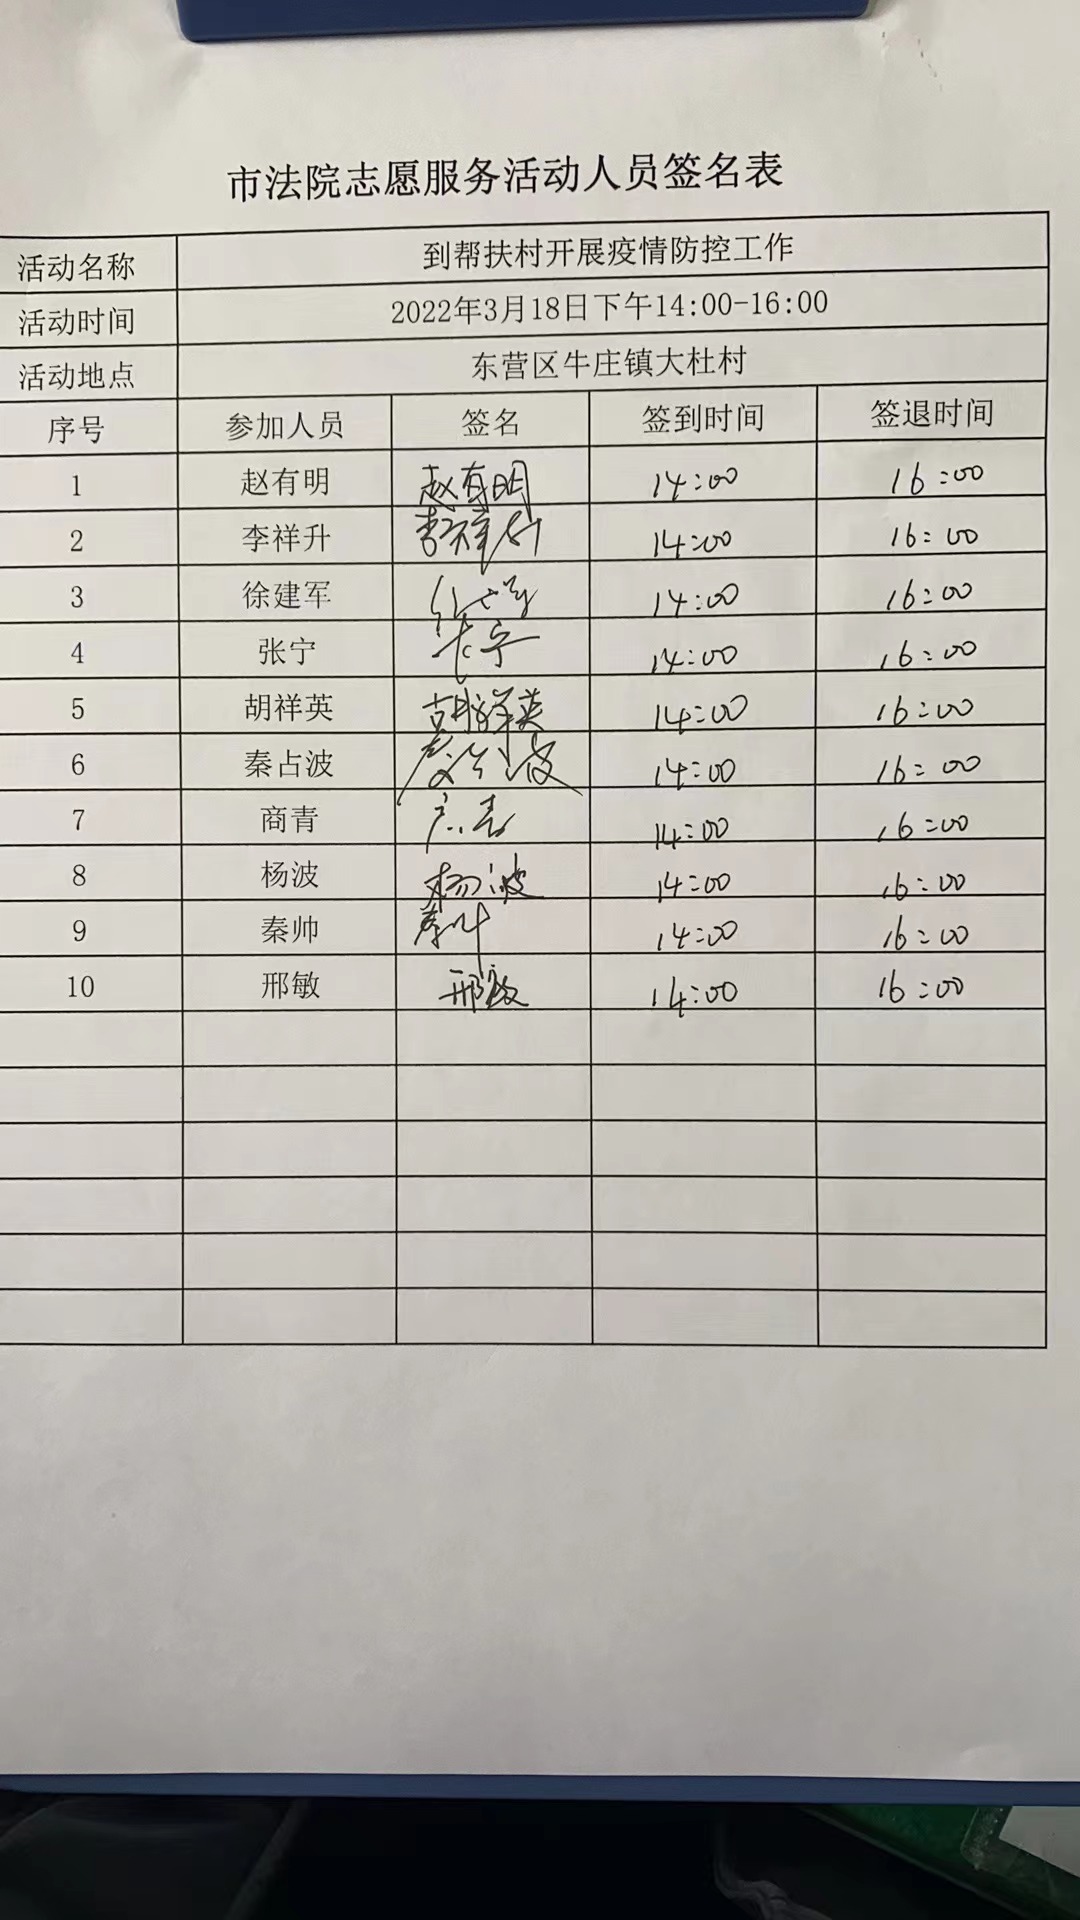 市法院志愿服务活动人员签名表
活动名称 到帮扶村开展疫情防控工作
活动时间 2022年3月18日下午14:00-16:00
活动地点 东营区牛庄镇大杜村
序号 参加人员 签名 签到时间 签退时间
1 赵有明 赵有明 14:00 16:00
2 李祥升 李祥升 14:00 16:00
3 徐建军 14:00 16:00
4 张宁 张宁 14:00 16:00
5 胡祥英 胡祥英 14:00 16:00
6 秦占波 秦占波 14:00 16:00
7 商青 商青 14:00 16:00
8 杨波 杨波 14:00 16:00
9 秦帅 秦帅 14:00 16:00
10 邢敏 邢敏 14:00 16:00